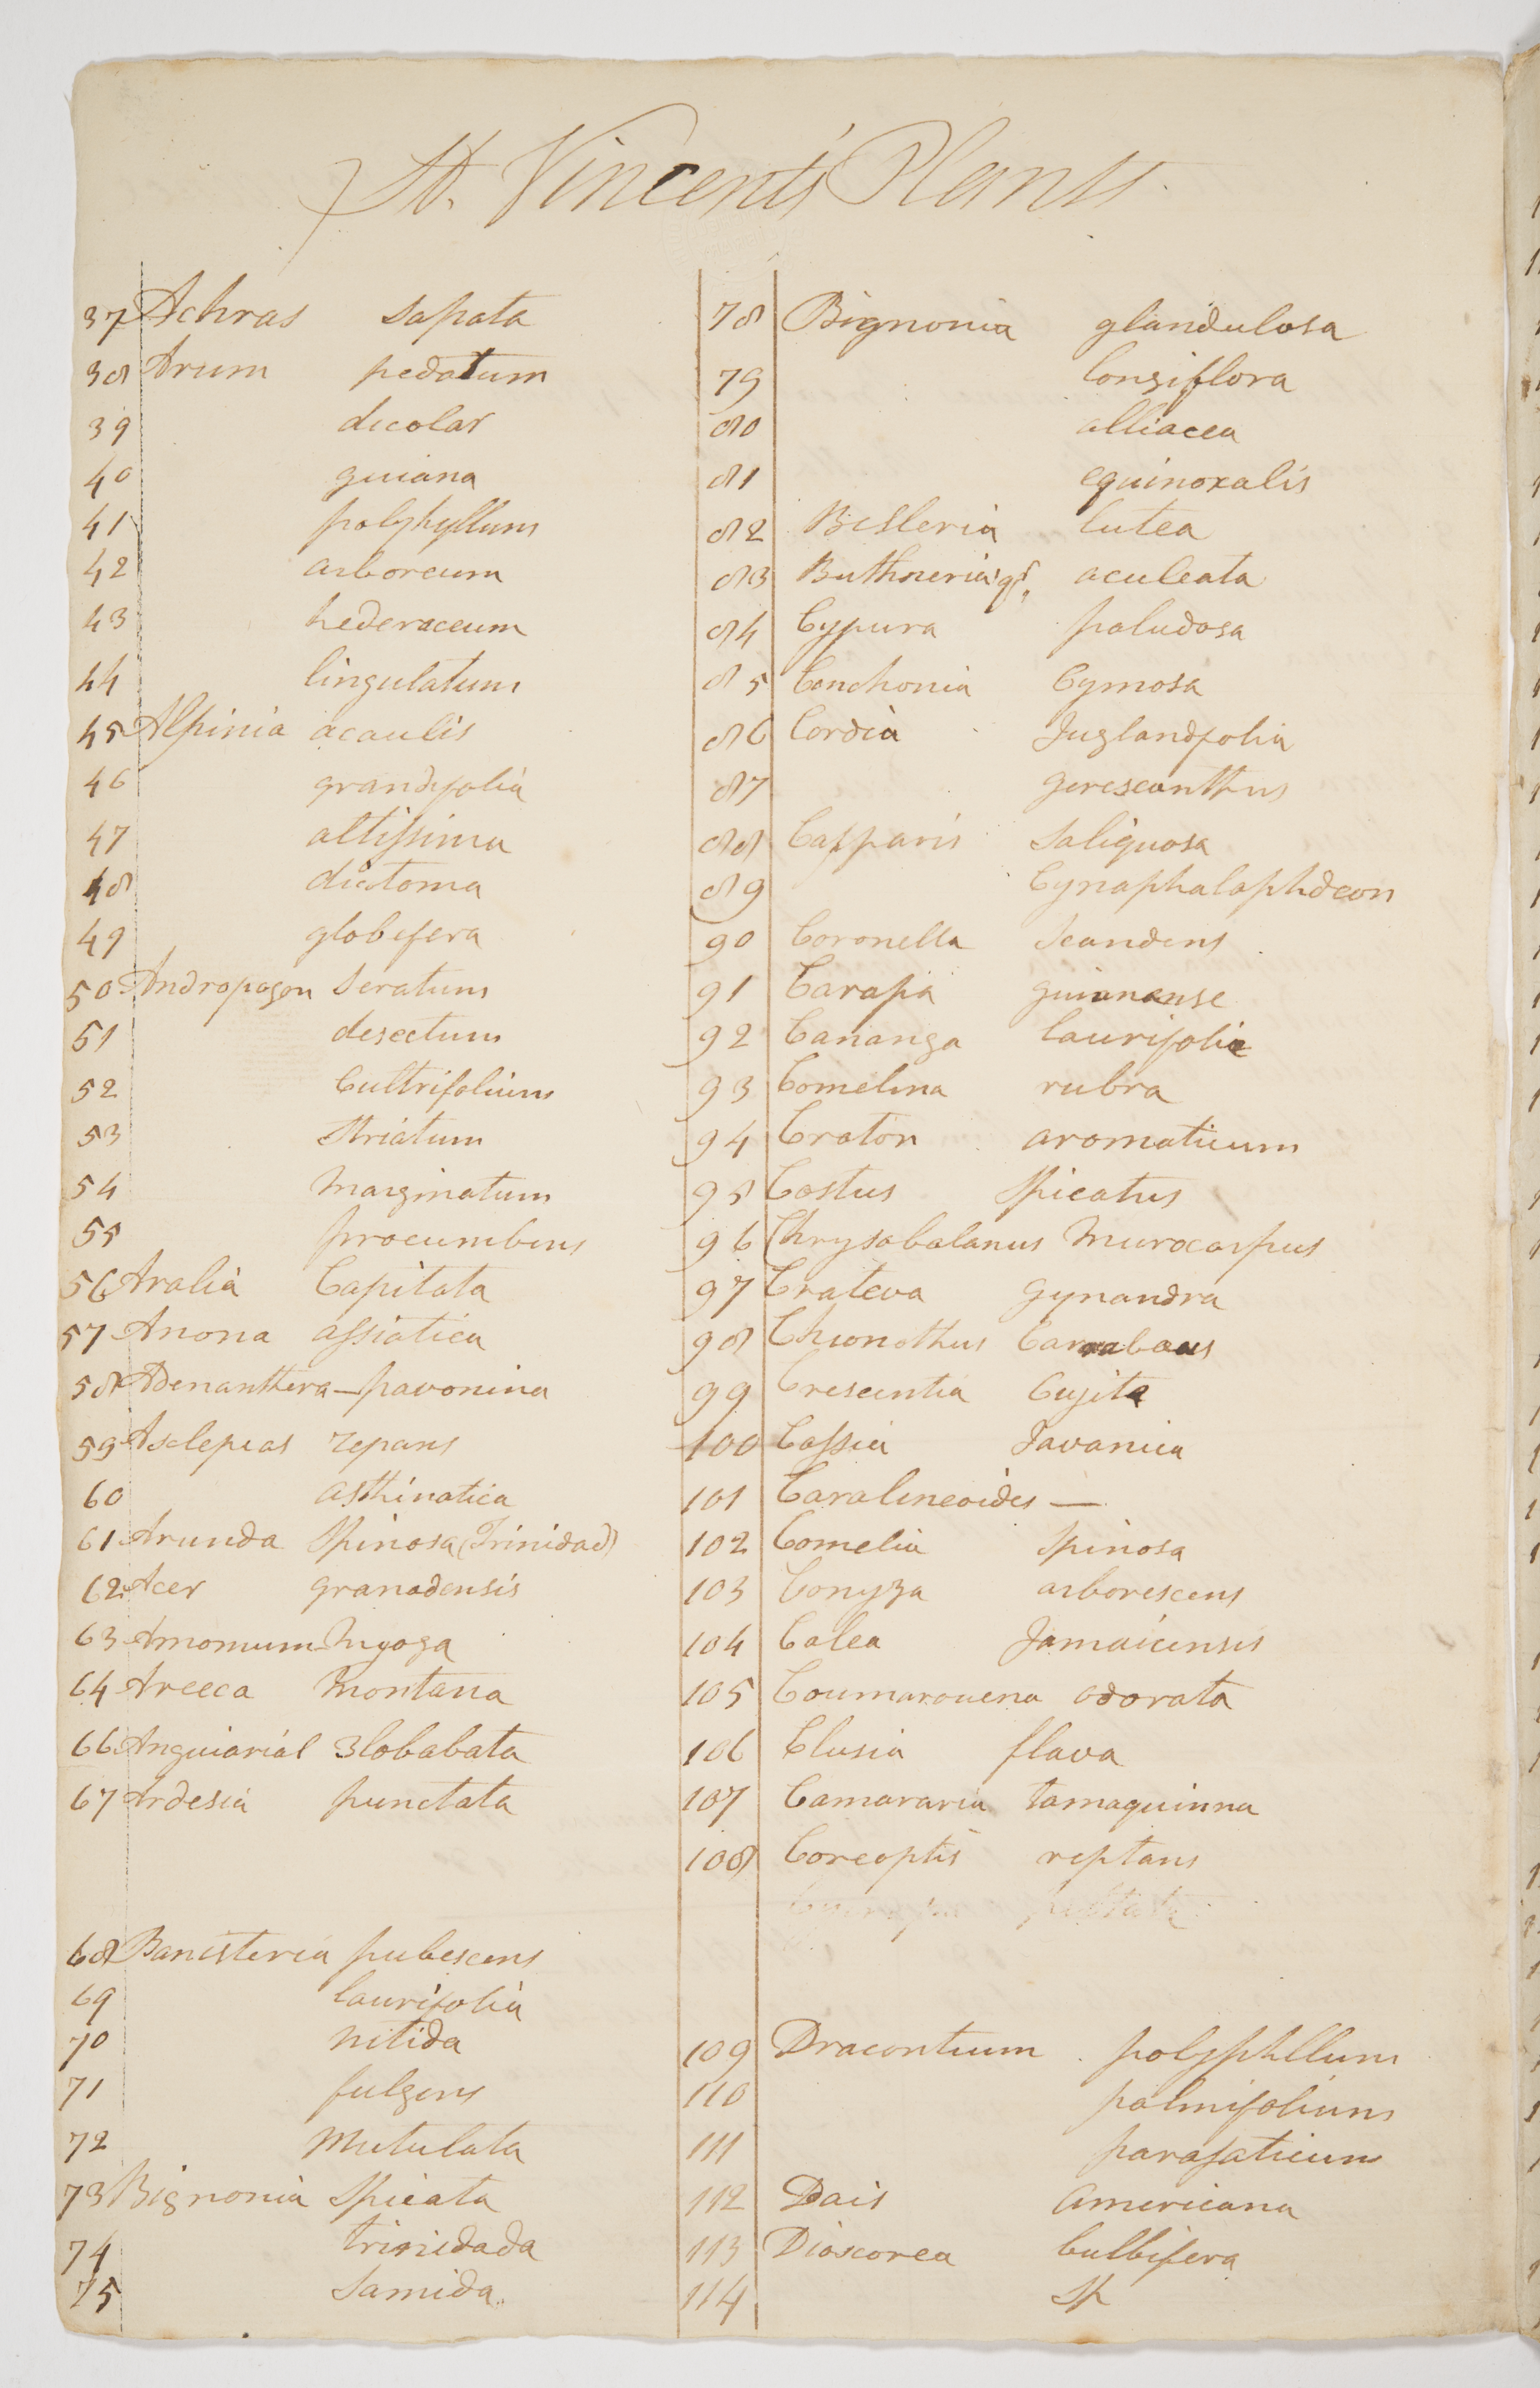 St. Vincents Plants
37 Achras Sapata
38 Arum pedatum
39 dicolar
40 guiana
41 polyhyllum
42 arboreum
43 hederaceum
44 lingulatum
45 Alpinia acaulis
46 grandifolia
47 altissima
48 dictoma
49 globifera
50 Andropogon Seratum
51 desectum
52 Cultrifolium
53 Striatum
54 Marginatum
55 procumbens
56 Aralia Capitata
57 Anona assiatica
58 Adenanthera - pavonina
59 Asclepias repans
60 asthinatica
61 Arunda Spinosa (Trinidad)
62 Acer granadensis
63 Amomum Myoga
64 Areeca Montana
66 Anguiarial 3lobabata
67 Ardesia punctata
68 Banisteria pubescens
69 laurifolia
70 nitida
71 fulgens
72 Mutulata
73 Bignonia Spicata
74 trinidada
75 Samida
78 Bignonia glandulosa
79 longiflora
80 alliacea
81 equinoxalis
82 Besleria lutea
83 Buthneria qr. aculeata
84 Cypura paludosa
85 Conchonia Cymosa
86 Cordia Juglandfolia
87 gerescanthus
88 Capparis Saliquosa
89 Cynaphalaphdeon
90 Coronella Scandens
91 Carapa guiananse
92 Cananga laurifolia
93 Comelina rubra
94 Croton aromaticum
95 Costus Spicatus
96 Chrysobalanus Murocarpus
97 Crateva gynandra
98 Chionothus
99 Crescentia Cujita
100 Cassia Javanica
101 Caralineoides —
102 Comelia Spinosa
103 Conyza arborescens
104 Calea Jamaicensis
105 Coumarouena odorata
106 Clusia flava
107 Camararia tamaquinna
108 Coreoptis reptans
109 Dracontium polyphllum
110 palmifolium
111 parasaticum
112 Dais Americana
113 Dioscorea bulbifera
114 Sp